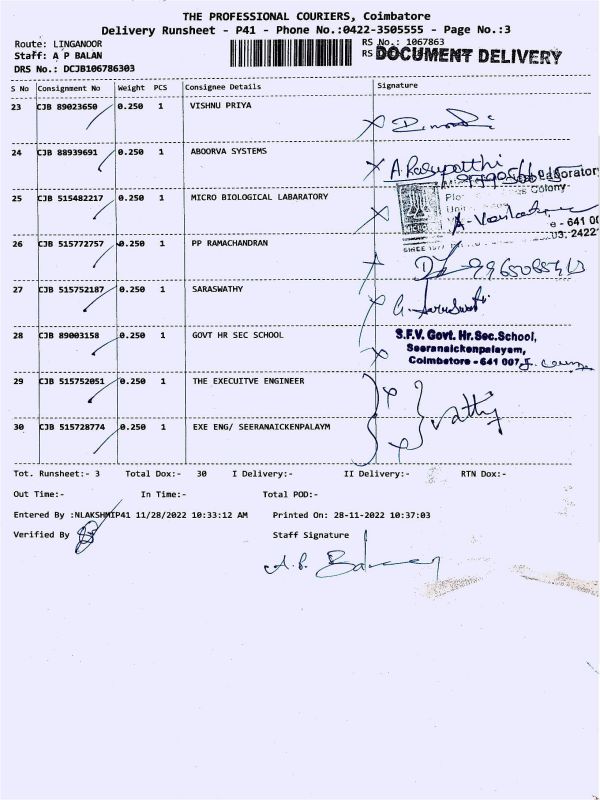 THE PROFESSIONAL COURIERS, Coimbatore
Delivery Runsheet - P41 - Phone No.:0422-3505555 - Page No.:3
Route: LINGANOOR
RS No.: 1067863
Staff: A P BALAN
RS
DOCUMENT DELIVERY
DRS No.: DCJB106786303
S No Consignment No Weight PCS Consignee Details Signature
23 CJB 89023650 0.250 1 VISHNU PRIYA
24 CJB 88939691 0.250 1 ABOORVA SYSTEMS
A. Rasupatthi
25 CJB 515482217 0.250 1 MICRO BIOLOGICAL LABARATORY
Laboratory
Colony
e - 641 00
26 CJB 515772757 0.250 1 PP RAMACHANDRAN
27 CJB 515752187 0.250 1 SARASWATHY
28 CJB 89003158 0.250 1 GOVT HR SEC SCHOOL
S.F.V. Govt. Hr. Sec. School,
Seeranaickenpalayam,
Coimbatore - 641 007.
29 CJB 515752051 0.250 1 THE EXECUITVE ENGINEER
30 CJB 515728774 0.250 1 EXE ENG/ SEERANAICKENPALAYM
Tot. Runsheet:- 3 Total Dox:- 30 I Delivery:- II Delivery:- RTN Dox:-
Out Time:- In Time:- Total POD:-
Entered By :NLAKSHMIP41 11/28/2022 10:33:12 AM Printed On: 28-11-2022 10:37:03
Verified By Staff Signature